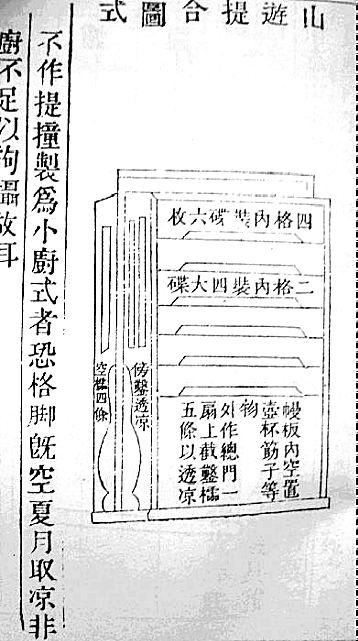 山遊提合圖式
四格內裝碟六枚
二格內裝四大碟
幔板內空置
壺杯筯子等
物
外作總門一
扇上截鑿櫺
五條以透凉
傍鑿透凉
空櫺四條
不作提撞製爲小廚式者恐格脚旣空夏月取凉非
廚不足以拘攝故耳